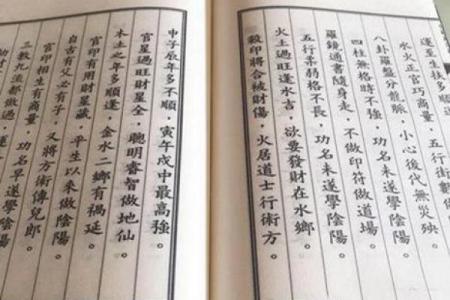 運至生扶多順
水火正官巧商量。小心後代無災殃
八卦羅盤分龍脈。功名未遂學陰陽
四柱無格時不強。不做印符做道場
羅鏡通書隨身走。功名未遂學陰陽
五行柔弱格不長。欲要發財在水鄉
火土過旺逢水吉。火居道士行術方。
殺印將合被財傷。
申子辰年多不順。寅午戌中最高強。
官星過旺財星全。聰明睿智做地仙。
木土之年多順遂。金水二鄉有禍延。
官印有用財星藏。平生以來做陰陽。
自古有父必有子。又將方術傳兒郎。
官印相生有商量。功名早遂學
三教九流都做過。